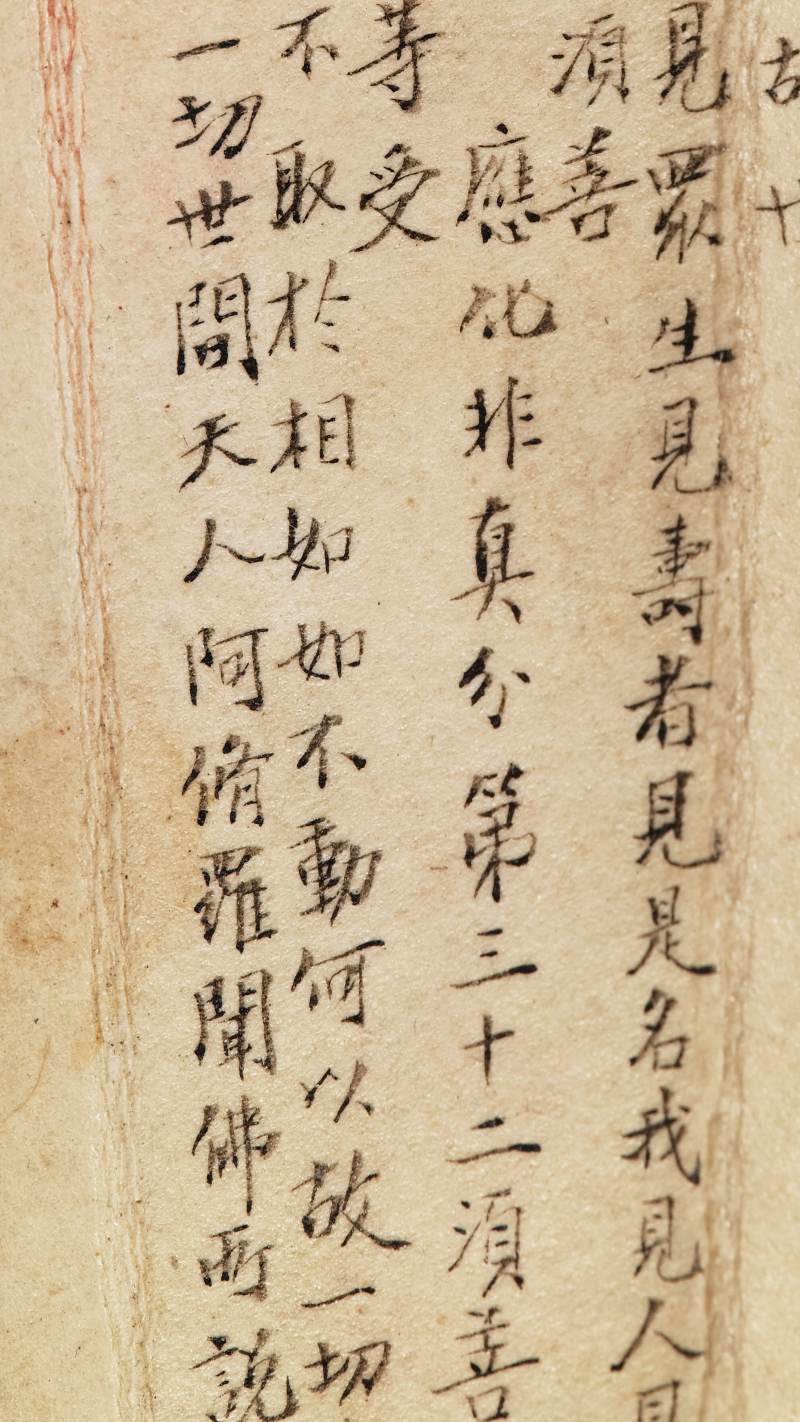 見眾生見壽者見是名我見人
湏善
應化非真分第三十二湏善
等受
不取於相如如不動何以故一切
一切世間天人阿脩羅聞佛所說